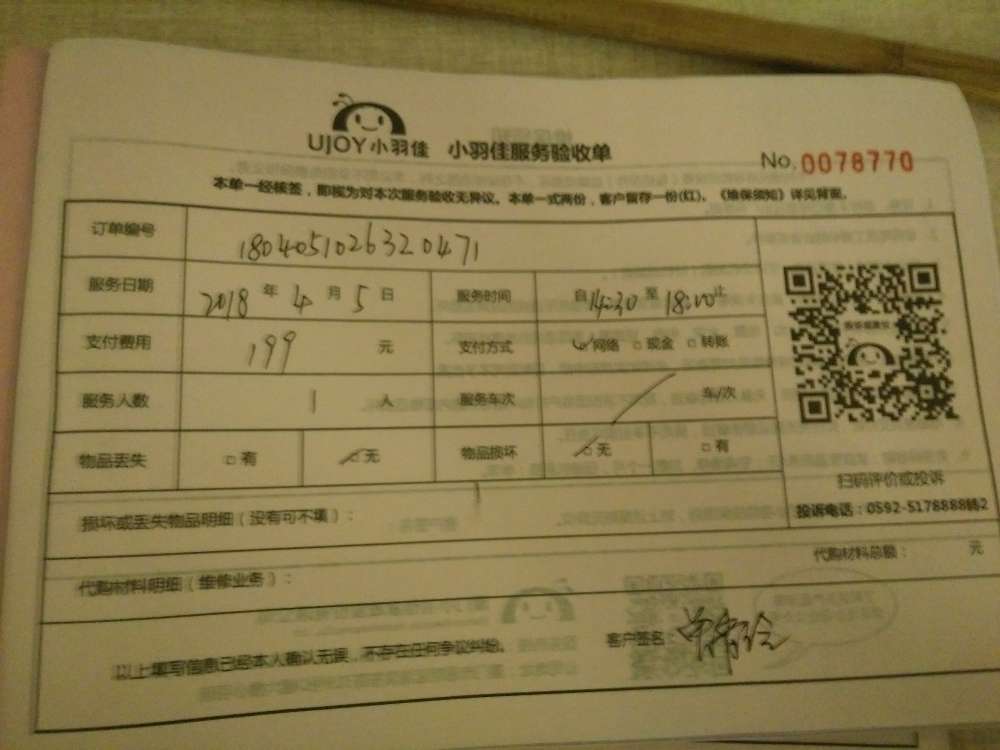 UJOY小羽佳 小羽佳服务验收单 No.0078770
本单一经核签，即视为对本次服务验收无异议。本单一式两份，客户留存一份(红)。《维保须知》详见背面。
订单编号 1804051026320471
服务日期 2018 年 4 月 5 日 服务时间 自14:30 至 18:00止
支付费用 199 元 支付方式 网络 现金 转账
服务人数 1 人 服务车次 车/次
物品丢失 有 无 物品损坏 无 有
扫码评价或投诉
投诉电话：0592-5178888转2
损坏或丢失物品明细（没有可不填）：
代购材料总额： 元
代购材料明细（维修业务）：
以上填写信息已经本人确认无误，不存在任何争议纠纷。 客户签名：